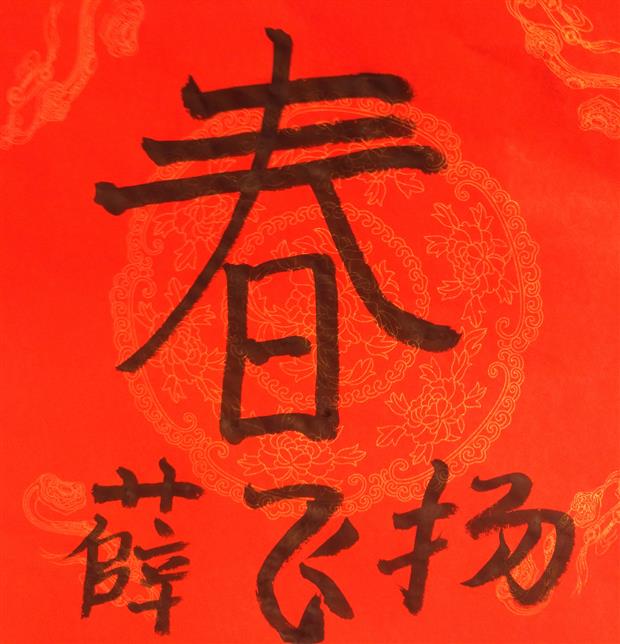 春
薛飞扬